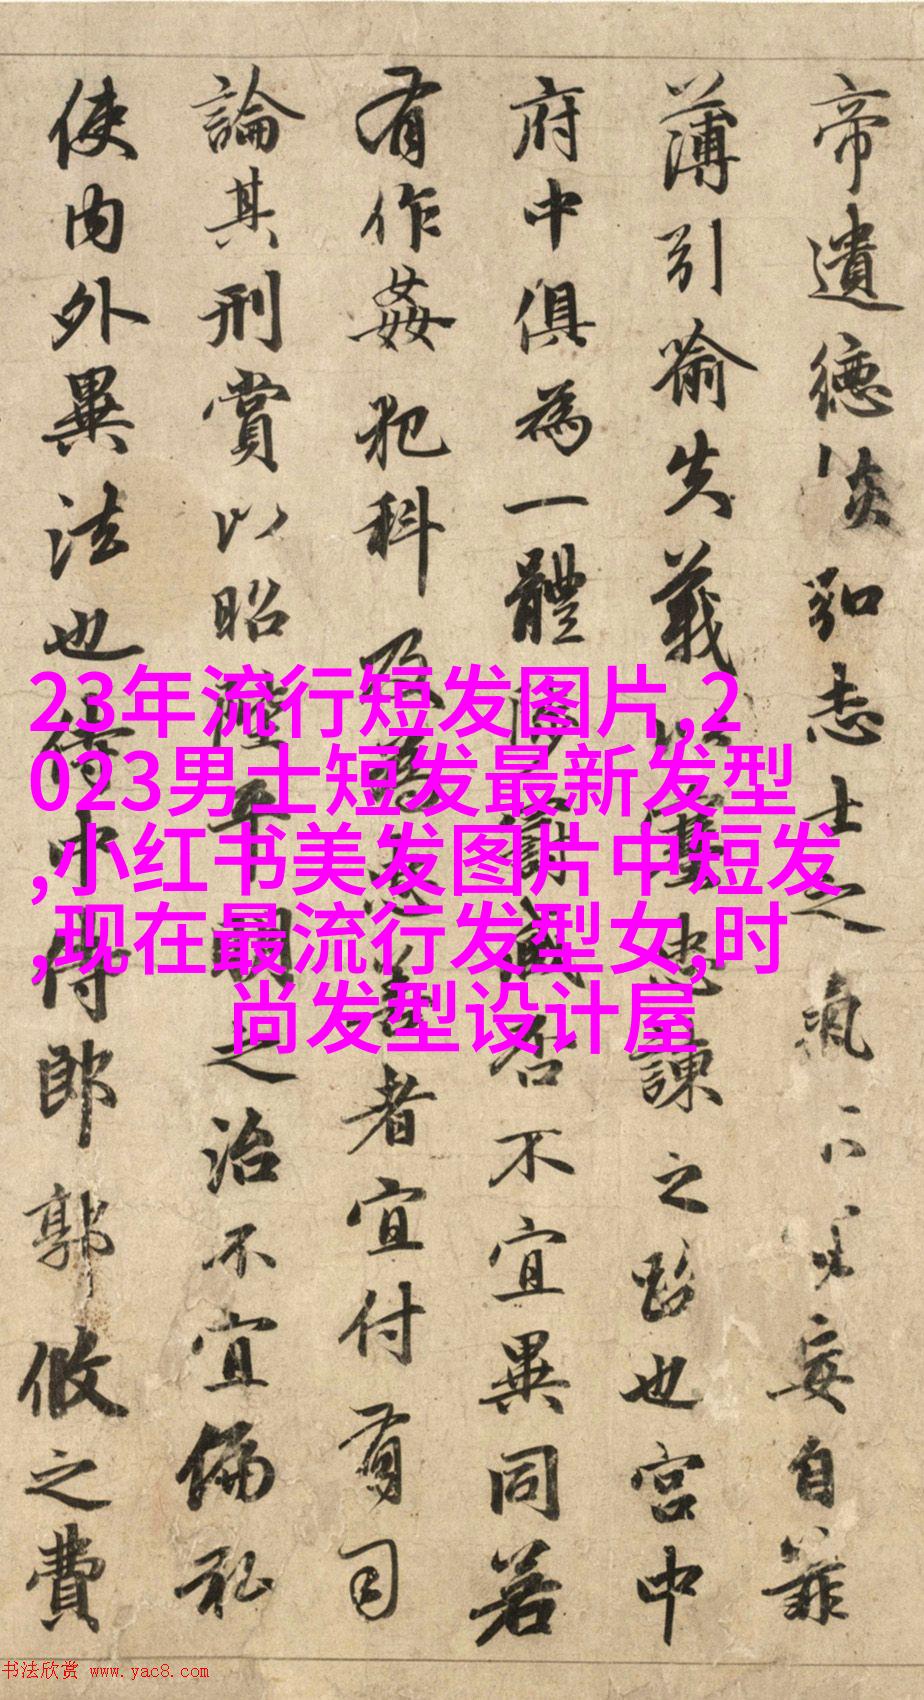 帝遺德恢弘志士之氣不妄自菲
薄引喻失義以塞忠諫之路也宮中
府中俱為一體陟罰臧否不宜異同若
有作姦犯科及為忠善者宜付有司
論其刑賞以昭陛平明之治不宜偏私
使內外異法也侍中侍郎郭攸之費
23年流行短发图片,2
023男士短发最新发型
,小红书美发图片中短发
,现在最流行发型女,时
尚发型设计屋
书法欣赏 www.yac8.com